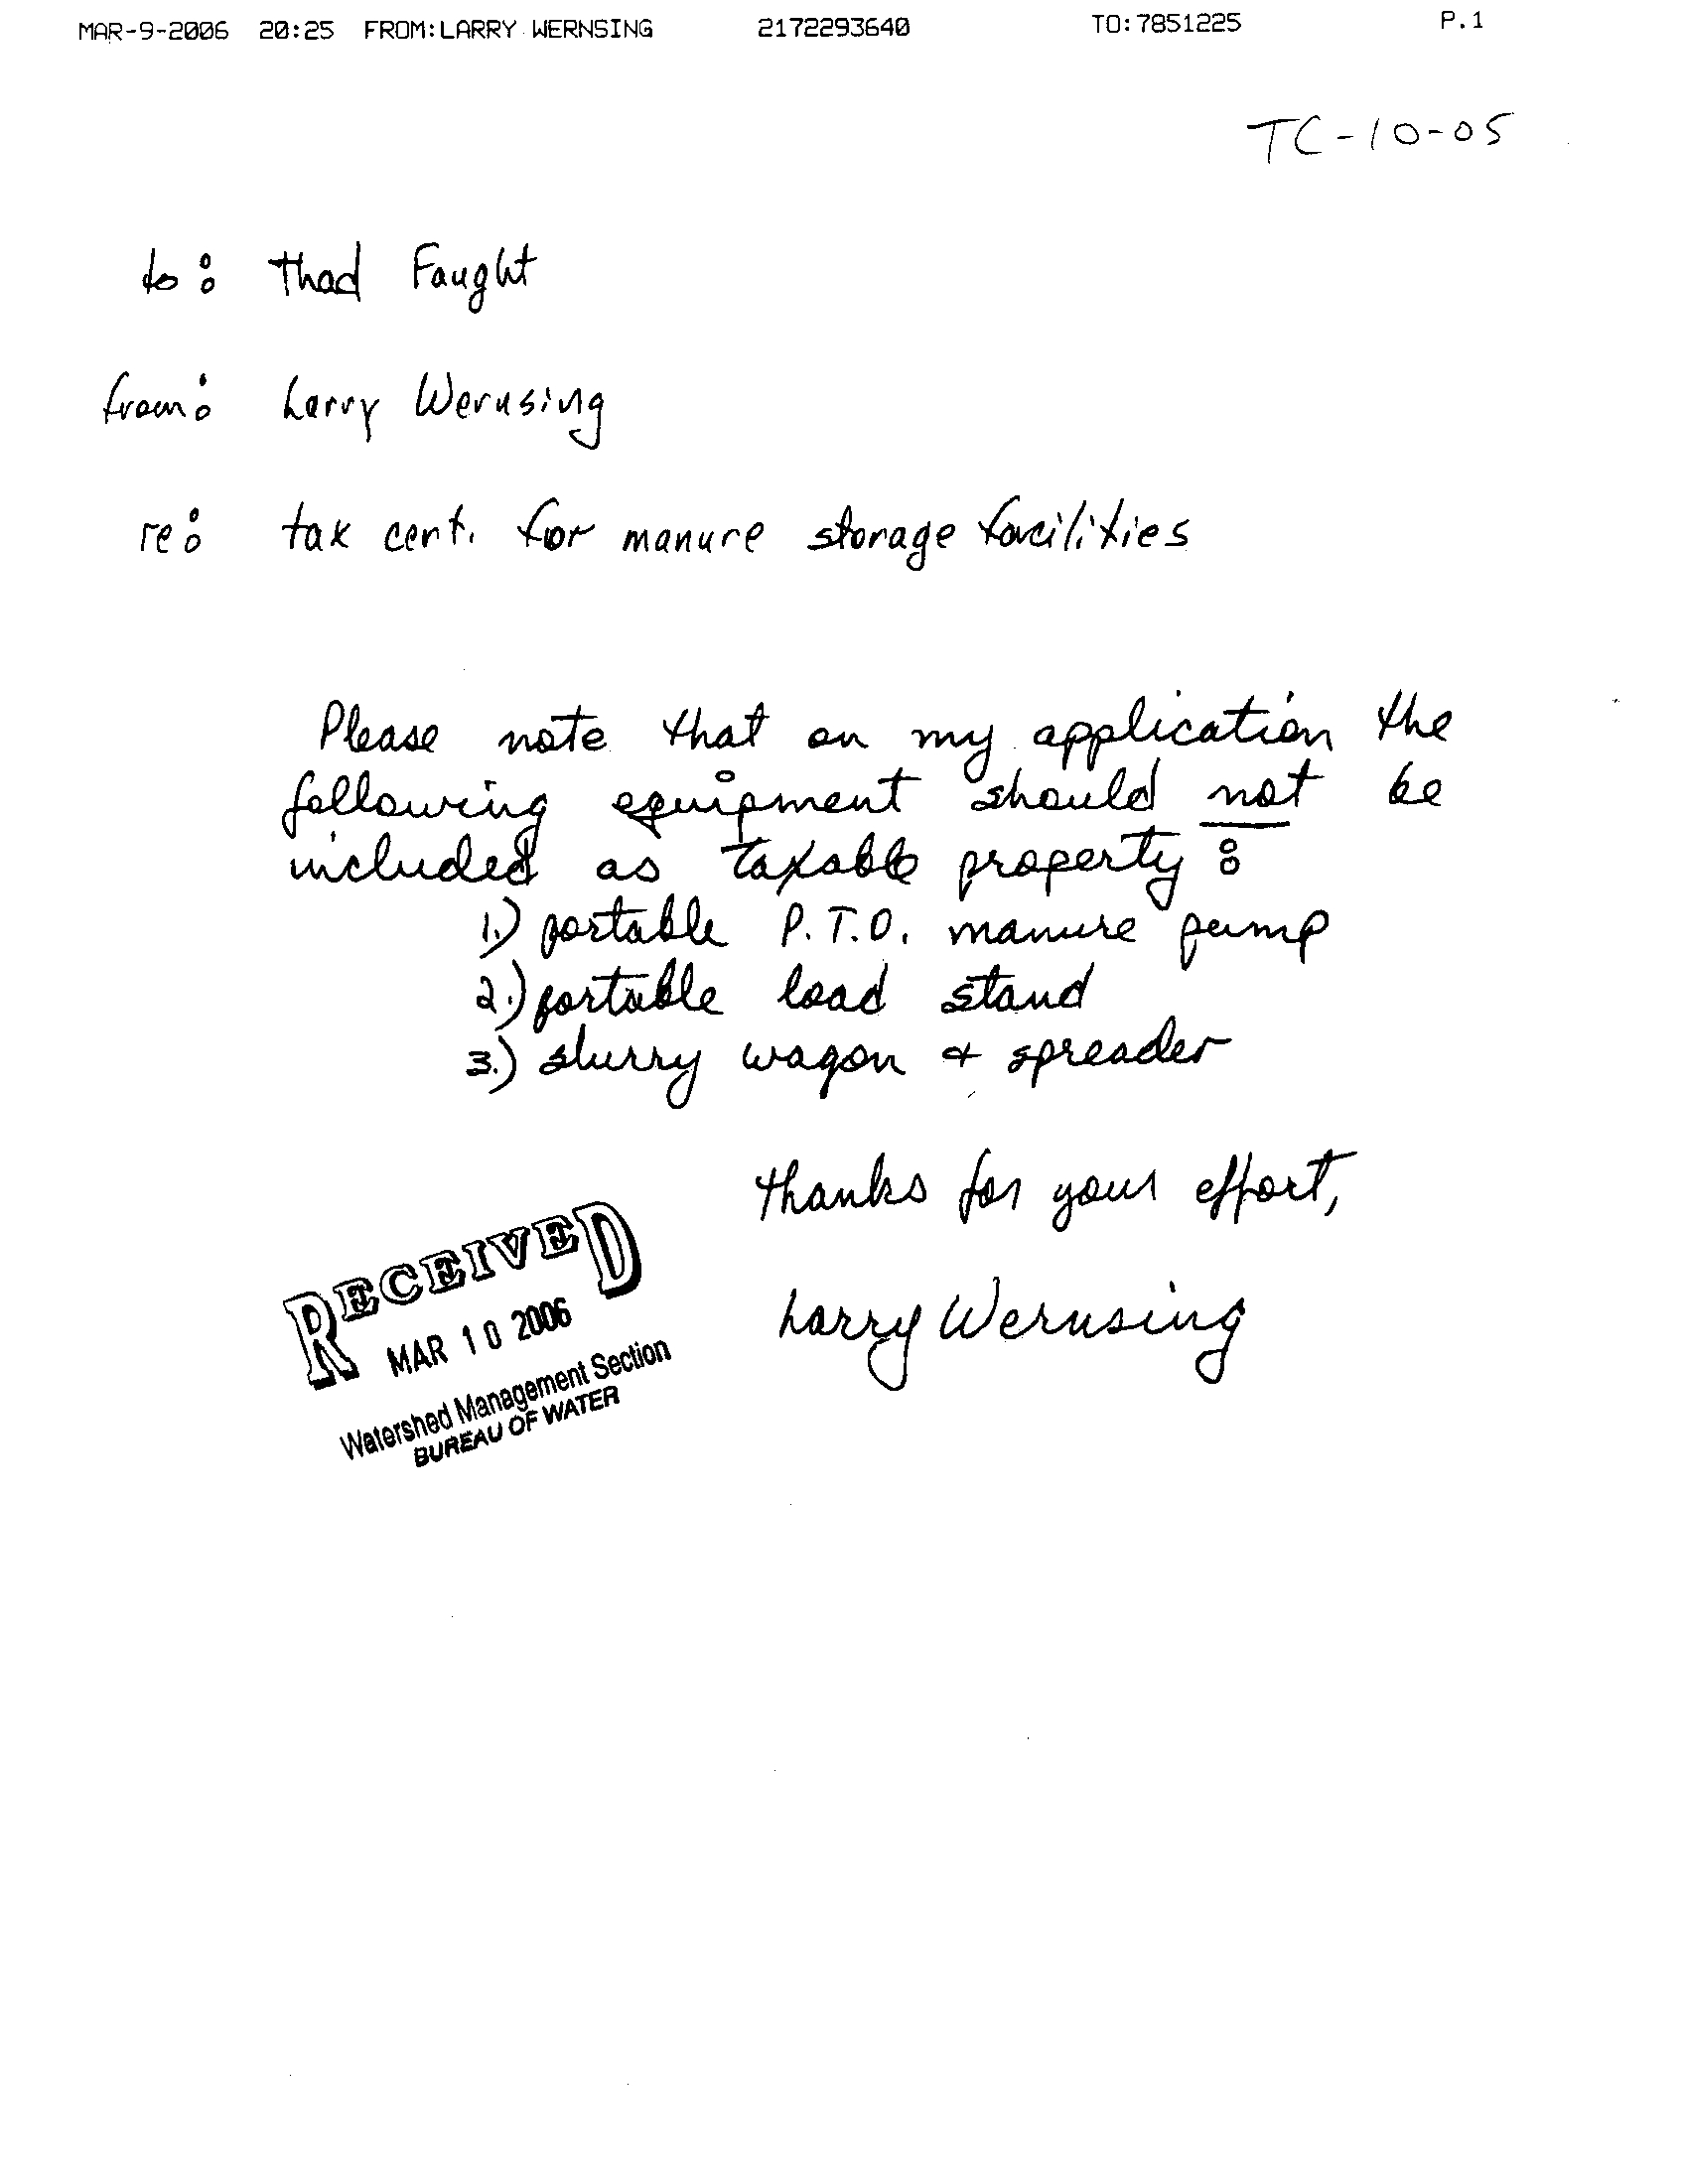 MAR-9-2006 20:25 FROM:LARRY WERNSING 2172293640 TO:7851225 P.1
TC-10-05
to: Thad Faught
from: Larry Wernsing
re: tax cert. for manure storage facilities
Please note that on my application the
following equipment should not be
included as taxable property:
1.) portable P.T.O. manure pump
2.) portable load stand
3.) slurry wagon & spreader
thanks for your effort,
Larry Wernsing
RECEIVED
MAR 10 2006
Watershed Management Section
BUREAU OF WATER